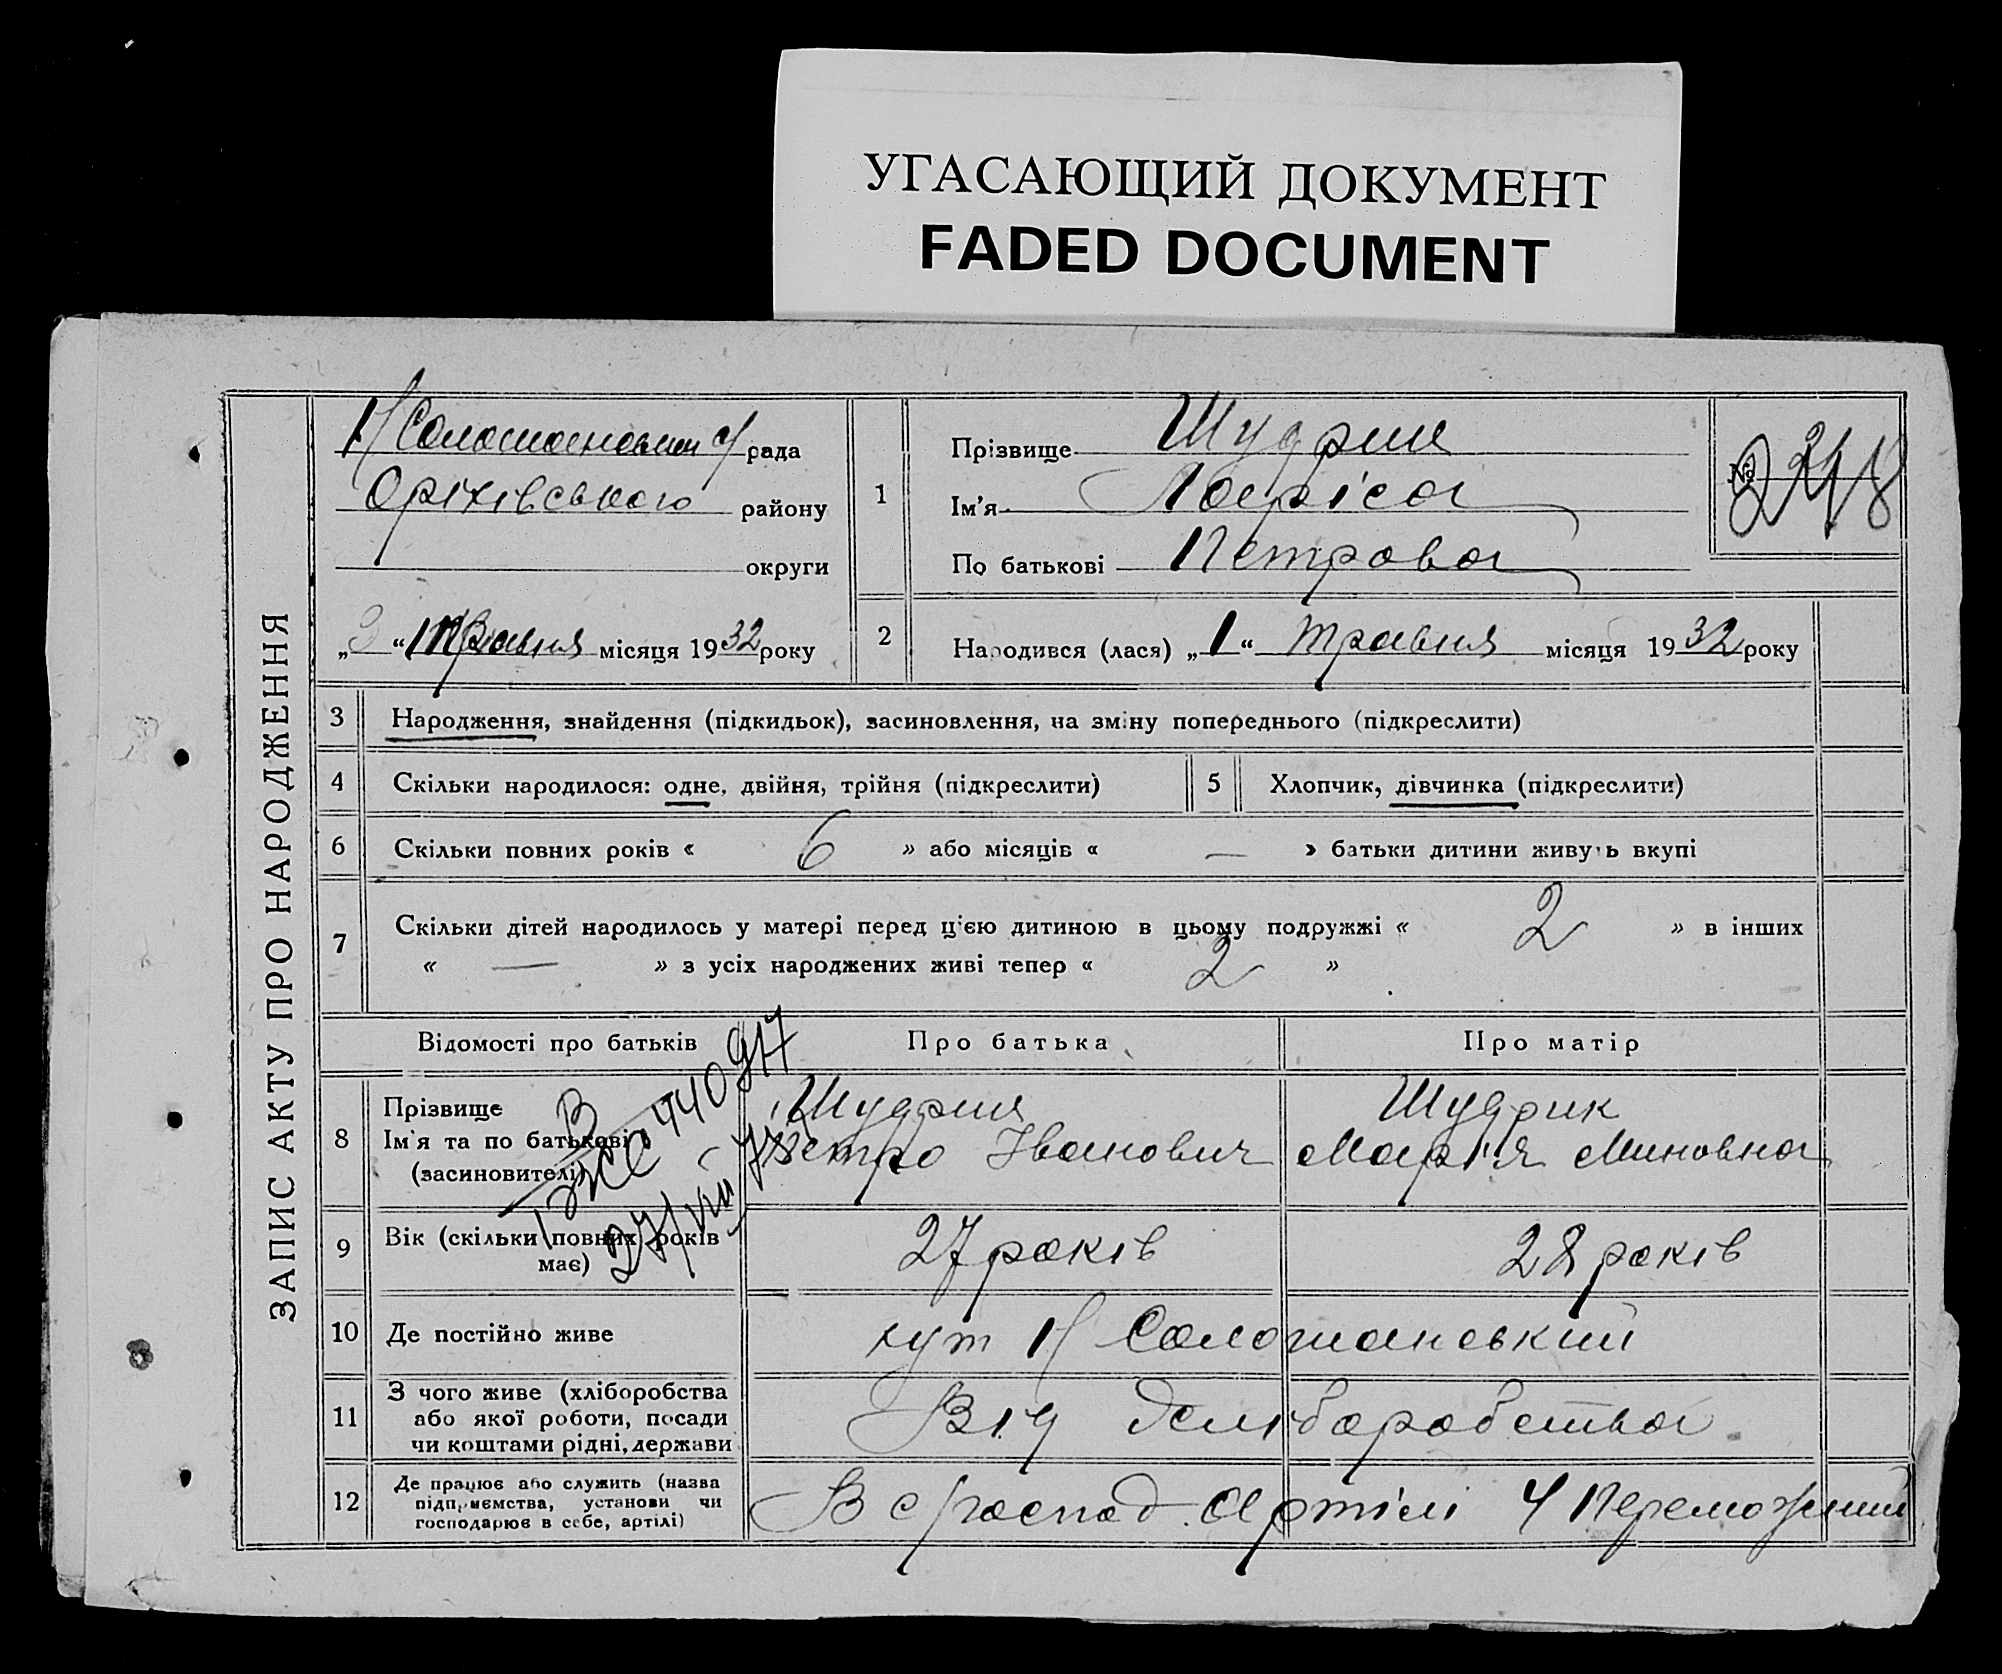 УГАСАЮЩИЙ ДОКУМЕНТ
FADED DOCUMENT
ЗАПИС АКТУ ПРО НАРОДЖЕННЯ
рада
Оріхівського району
округи
„3“ травня місяця 1932 року
1
Прізвище Щудрик
Ім'я Ларіса
По батькові Петровна
№ 248
2
Народився (лася) „1“ травня місяця 1932 року
3 Народження, знайдення (підкидьок), засиновлення, на зміну попереднього (підкреслити)
4 Скільки народилося: одне, двійня, трійня (підкреслити)
5 Хлопчик, дівчинка (підкреслити)
6 Скільки повних років « 6 » або місяців « — » батьки дитини живуть вкупі
7 Скільки дітей народилось у матері перед ц'єю дитиною в цьому подружжі « 2 » в інших
« — » з усіх народжених живі тепер « 2 »
Відомості про батьків Про батька Про матір
8 Прізвище
Ім'я та по батькові
(засиновителі)
Щудрик
Петро Іванович
Щудрик
Марія Миновна
440917
9 Вік (скільки повних років
має)
27 років 28 років
10 Де постійно живе
хут Н Соломанський
11 З чого живе (хліборобства
або якої роботи, посади
чи коштами рідні, держави
Від хліборобства
12 Де працює або служить (назва
підприємства, установи чи
господарює в себе, артілі)
В с/господ. Артілі Ч Переможний